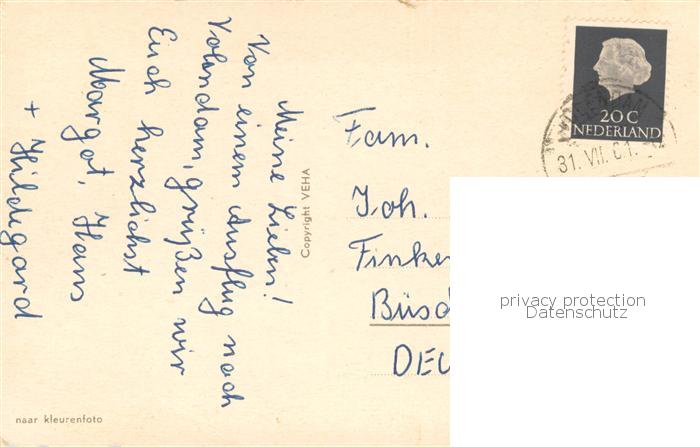 Meine Lieben!
Von einem Ausflug nach
Volendam, grüßen wir
Euch herzlichst
Margot, Hans
+ Hildegard
Copyright VEHA
naar kleurenfoto
20 C
NEDERLAND
31. VII. 61.
Fam.
Joh.
Finke
Büsd
DEU
privacy protection
Datenschutz